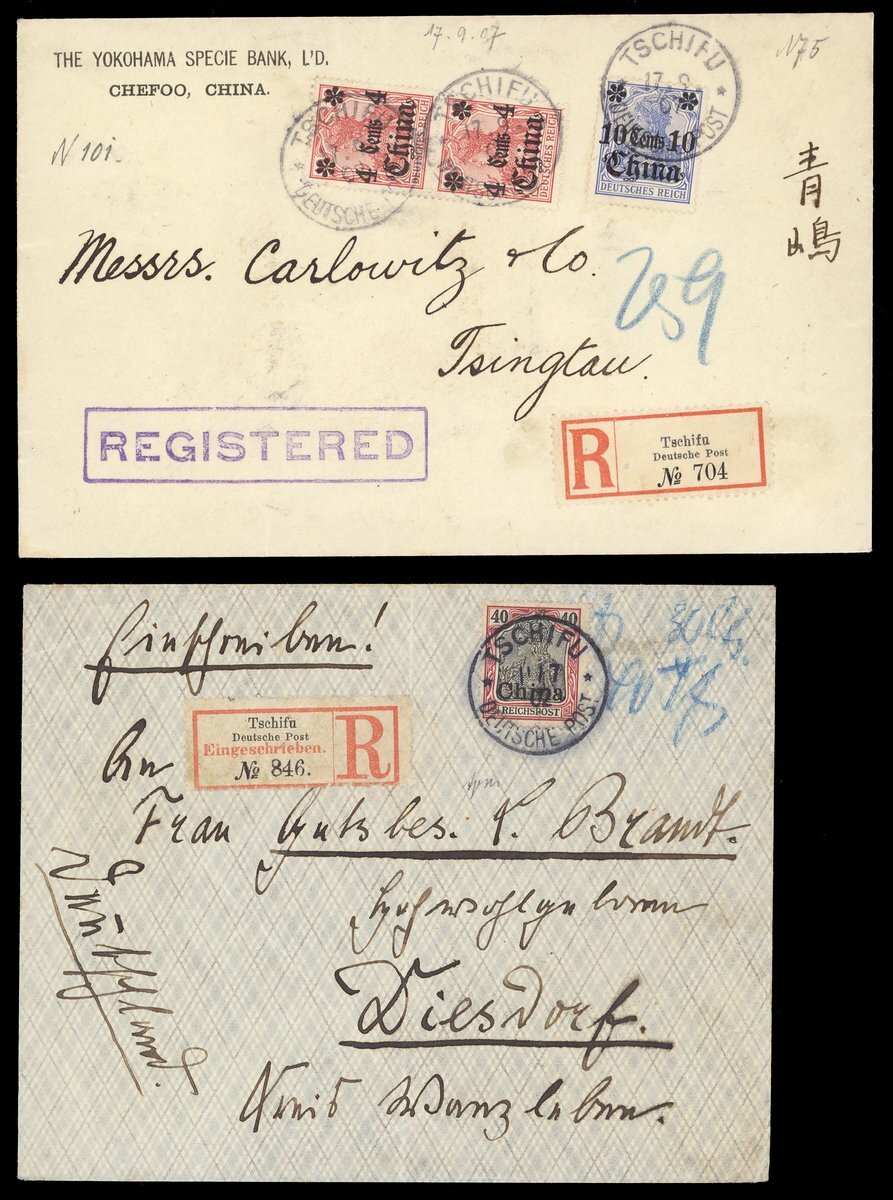 17.9.07
N75
THE YOKOHAMA SPECIE BANK, L'D.
CHEFOO, CHINA.
N 101.
TSCHIFU
DEUTSCHE
4 Cents 4
China
DEUTSCHES REICH
TSCHIFU
17
4 Cents 4
China
DEUTSCHES REICH
TSCHIFU
17 9
POST
10 Cents 10
China
DEUTSCHES REICH
青嶋
Messrs. Carlowitz & Co.
Tsingtau.
REGISTERED
R
Tschifu
Deutsche Post
№ 704
Einschreiben!
40 40
China
REICHSPOST
TSCHIFU
DEUTSCHE POST
Tschifu
Deutsche Post
Eingeschrieben.
№ 846.
R
An
Frau Gutsbes. L. Brandt.
Hochwohlgeboren
Diesdorf.
Kreis Wanzleben.
Deutschland.